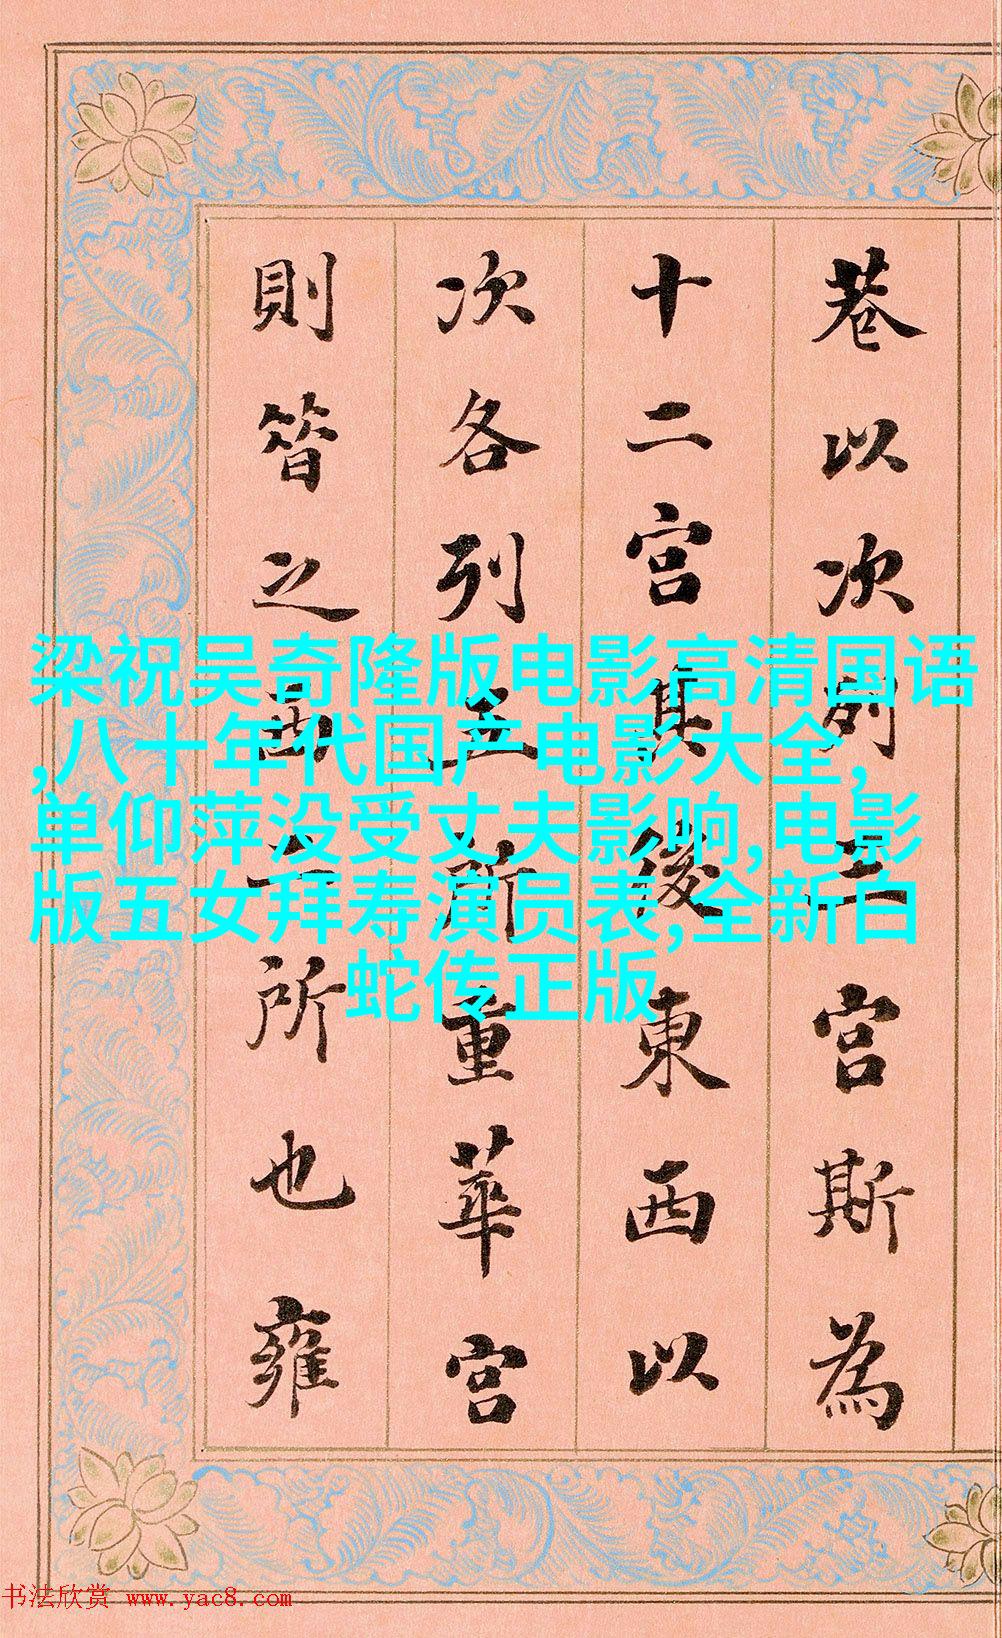 巷以次列三宮斯為
十二宮其後東西以
次各列五所重華宮
則昔之西二所也雍
梁祝吴奇隆版电影高清国语
,八十年代国产电影大全,
单仰萍没受丈夫影响,电影
版五女拜寿演员表,全新白
蛇传正版
书法欣赏 www.yac8.com